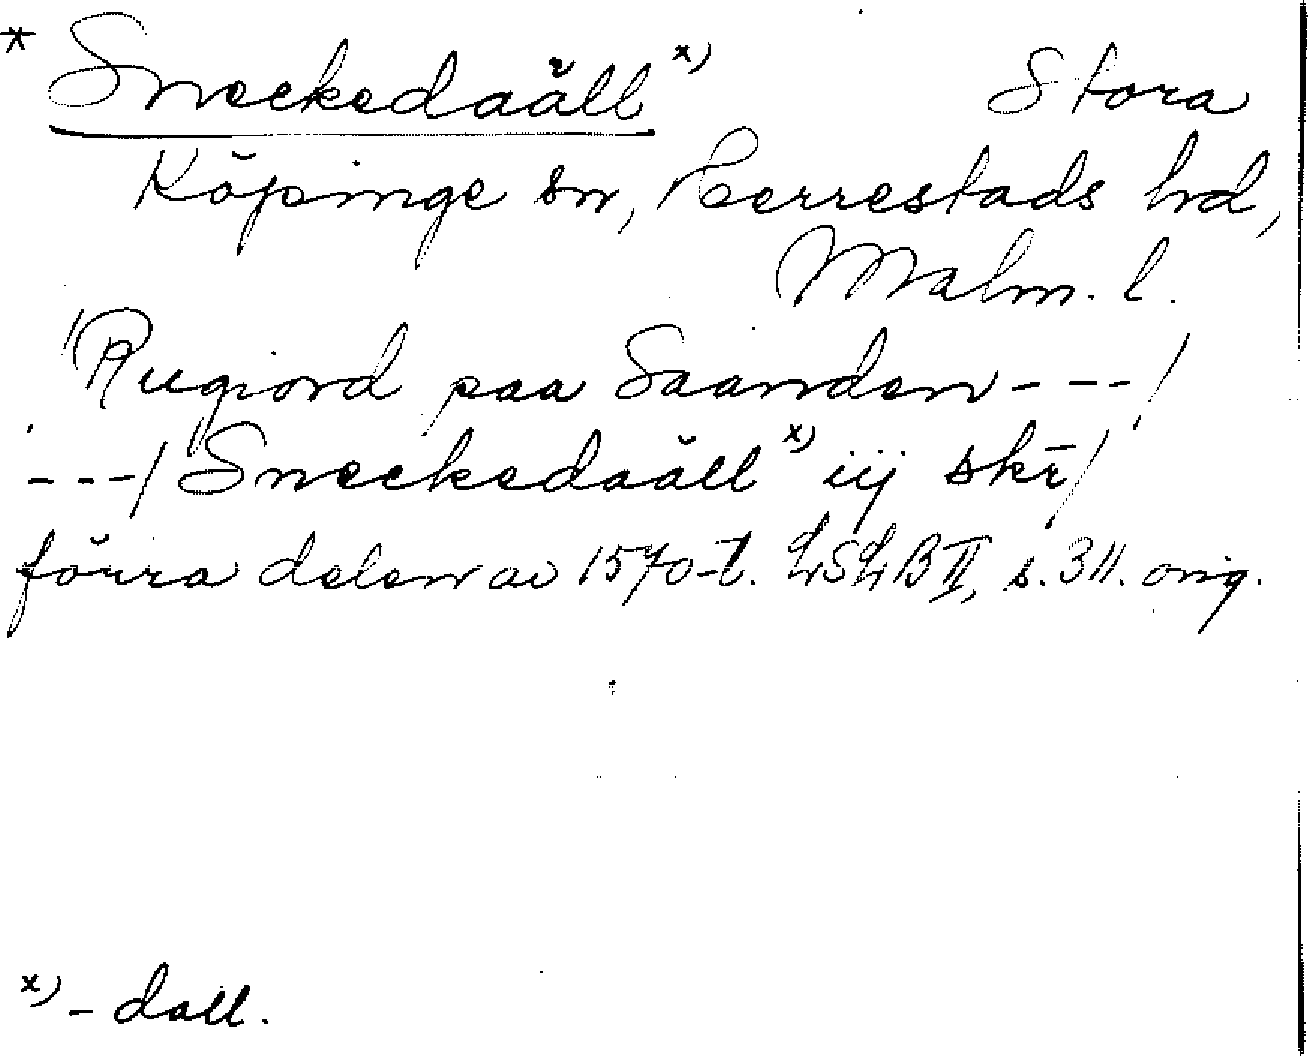 * Sneckedaäll x) Stora
Köpinge sn, Herrestads hd,
Malm. l.
"Rugiord paa Saanden---/
---/"Sneckedaäll x) iij skr̄/
förra delen av 1570-t. LSLB II, s. 311. orig.
x) - dall.